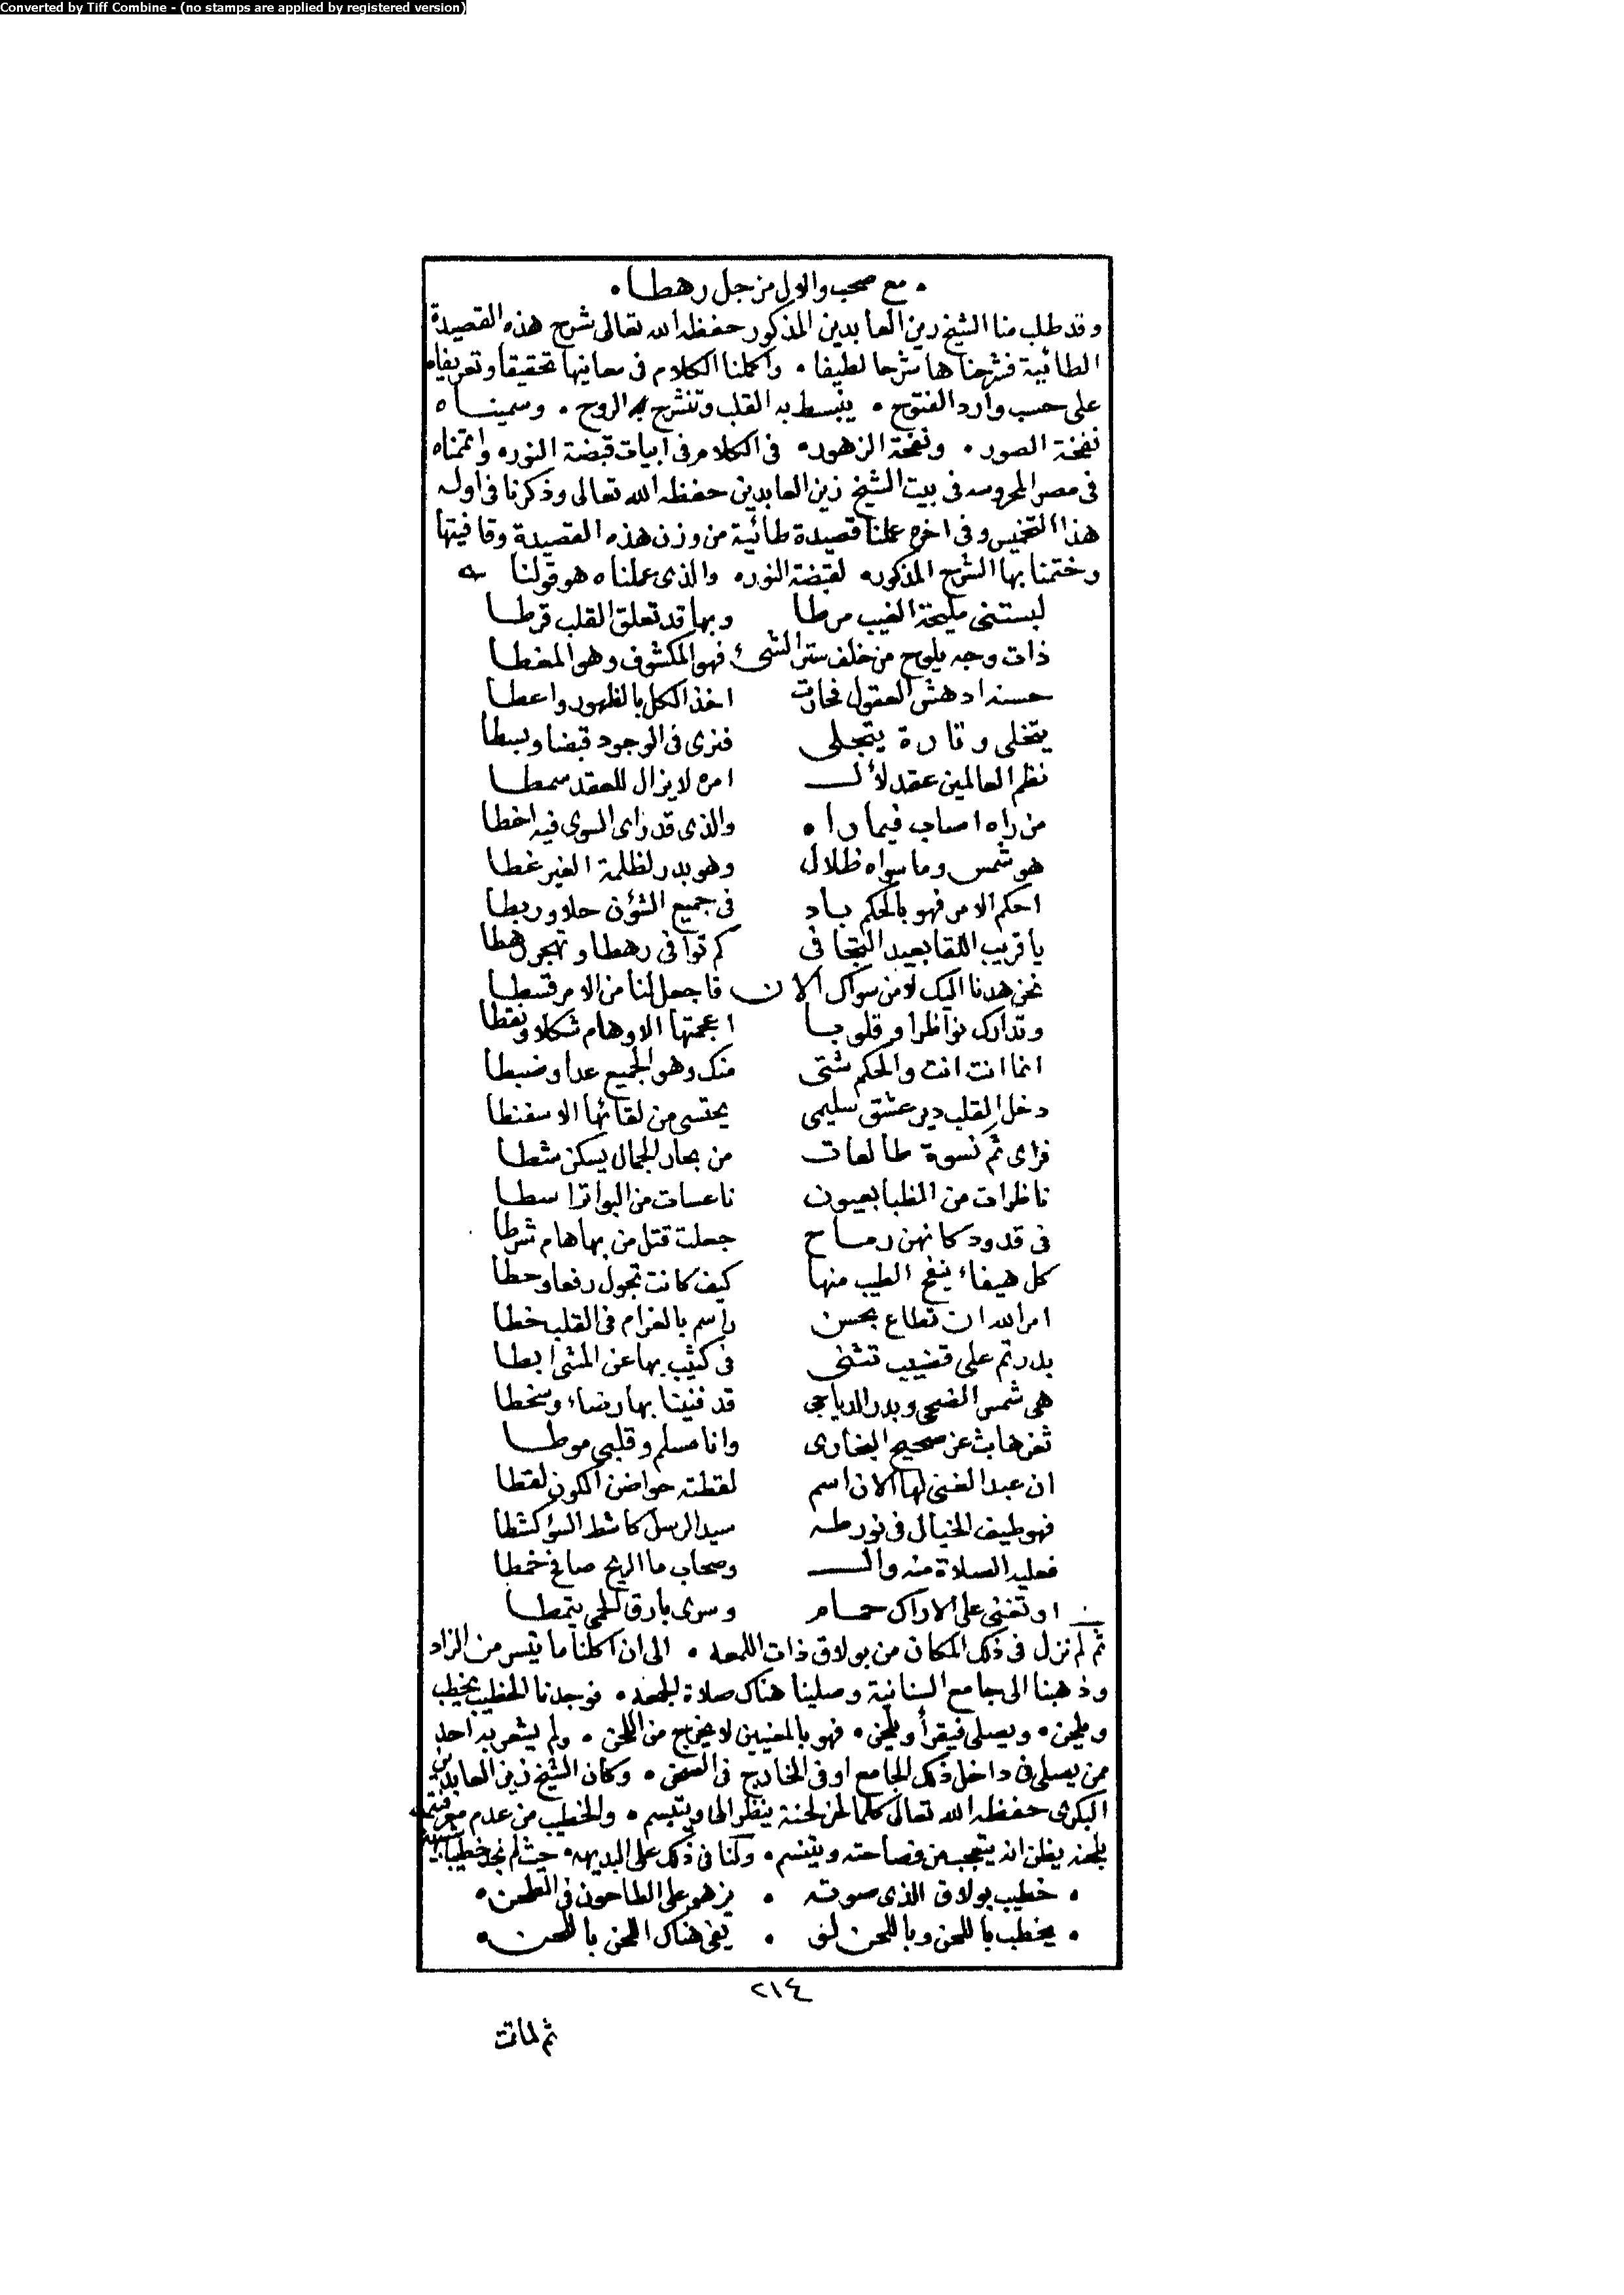 Converted by Tiff Combine - (no stamps are applied by registered version)
• مع صحب والال من جل رهطا •
وقد طلب منا الشيخ زين العابدين المذكور حفظه الله تعالى شرح هذه القصيدة
الطائية فشرحناها شرحا لطيفا • واكملنا الكلام فى معانيها تحقيقا وتعريفا •
على حسب وارد الفتوح • ينبسط به القلب وتنشرح به الروح • وسميناه
نفخة الصور • ونفحة الزهور • فى الكلام فى ابيات قبضة النور • واتممناه
فى مصر المحروسه فى بيت الشيخ زين العابدين حفظه الله تعالى وذكرنا فى اوله
هذا التخميس وفى اخره عملنا قصيدة طائية من وزن هذه القصيدة وقافيتها
وختمنا بها الشرح المذكور • لقبضة النور • والذى عملناه هو قولنا
لبستنى مليحة الغيب مرطا وبها قد تعلق القلب قرطا
ذات وجه يلوح من خلف ستر الشىء فهو المكشوف وهو المغطا
حسنه ادهش العقول فحارت اخذ الكل بالظهور واعطا
يتخلى وتارة يتجلى فنرى فى الوجود قبضا وبسطا
نظم العالمين عقد لآل امره لا يزال للعقد سمطا
من راه اصاب فيما راه والذى قد راى السوى فيه اخطا
هو شمس وما سواه ظلال وهو بدر لظلمة الغير غطا
احكم الامر فهو بالحكم باد فى جميع الشؤن حلا وربطا
يا قريب اللقا بعيد التجافى كم توافى رهطا وتهجر رهطا
نحن هدنا اليك لا من سواك الان فاجعل لنا من الامر قسطا
وتدارك نواظرا وقلوبا اعجمتها الاوهام شكلا ونقطا
انما انت انت والحكم شتى منك وهو الجميع عدا وضبطا
دخل القلب دير عشق سليمى يحتسى من لقائها الاسفنطا
فراى ثم نسوة طالعات من بحار الجمال يسكن شطا
ناظرات من الظبا بعيون ناعسات من البواتر اسطا
فى قدود كانهن رماح جعلت قتل من بها هام شرطا
كل هيفاء ينفح الطيب منها كيف كانت تجول رفعا وحطا
امر الله ان تطاع بحسن راسم بالغرام فى القلب خطا
بدر تم على قضيب تثنى فى كثيب بها عن المشى ابطا
هى شمس الضحى وبدر الدياجى قد فنينا بها رضاء وسخطا
ثغرها بث عن صحيح البخارى وانا مسلم وقلبى موطا
ان عبد الغنى لها الان اسم لقطته حواضن الكون لقطا
فهو طيف الخيال فى نور طه سيد الرسل كاشط السؤ كشطا
فعليه الصلاة منه وال وصحاب ما الريح صافح خمطا
او تغنى على الاراك حمام وسرى بارق الحمى يتمطا
ثم لم نزل فى ذلك المكان من بولاق ذات اللمعه • الى ان اكلنا ما تيسر من الزاد
وذهبنا الى جامع السنانية وصلينا هناك صلاة الجمعه • فوجدنا الخطيب يخطب
ويلحن • ويصلى فيقرأ ويلحن • فهو بالمعنيين لا يخرج من اللحن • ولم يشعر به احد
ممن يصلى فى داخل ذلك الجامع او فى الخارج فى الصحن • وكان الشيخ زين العابدين
البكرى حفظه الله تعالى كلما لحن لحنة ينظر الى ويتبسم • والخطيب من عدم معرفته
بلحنه يظن انه يتعجب من فصاحته ويتنسم • وقلنا فى ذلك على البديهه • حيث لم نجد خطيبا شبيهه
• خطيب بولاق الذى صوته • يزهو على الطاحون فى الطحن •
• يخطب باللحن وباللحن لم • يفى هناك اللحن باللحن •
٢١٤
ثم لما تمت